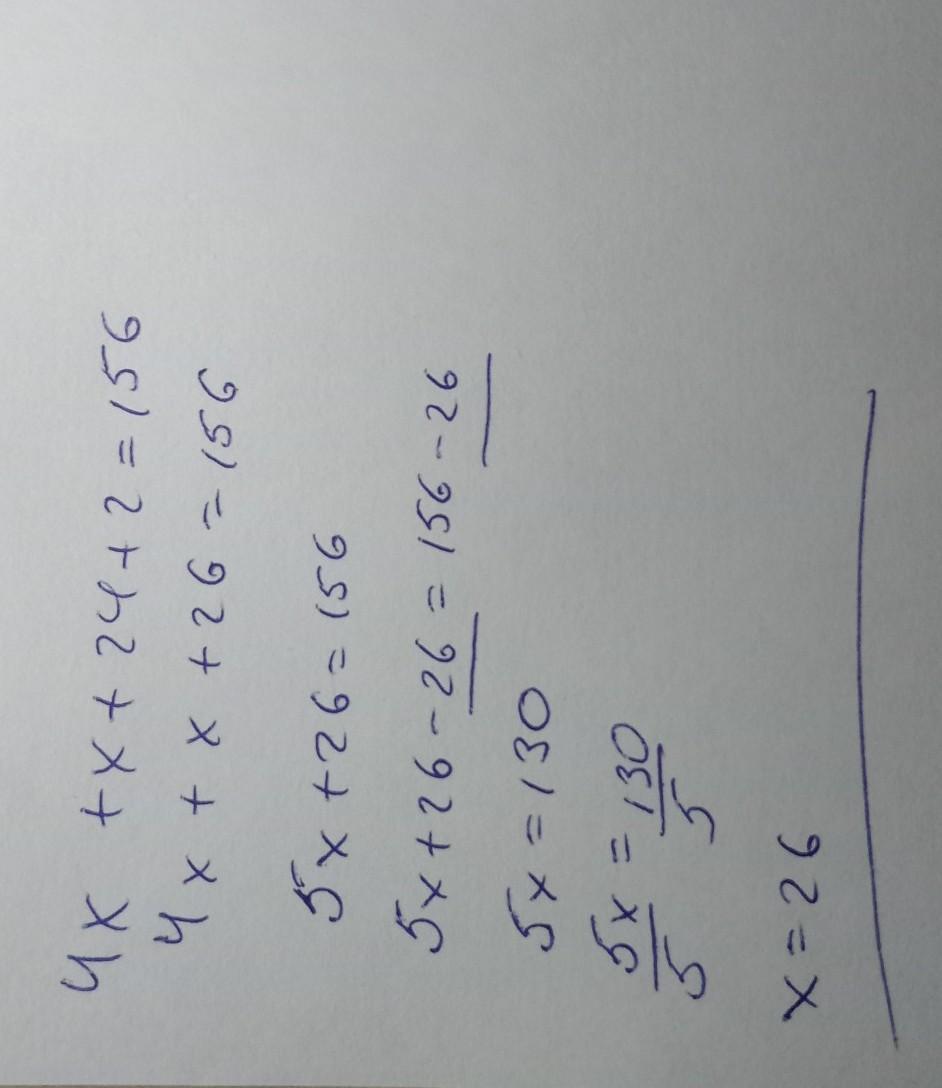 4x + x + 24 + 2 = 156
4x + x + 26 = 156
5x + 26 = 156
5x + 26 - 26 = 156 - 26
5x = 130
5x/5 = 130/5
x = 26